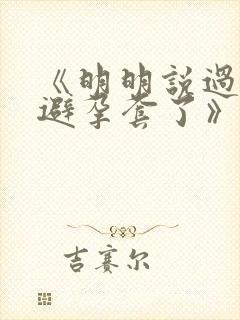 《明明說過
避孕套了》
吉賽尔